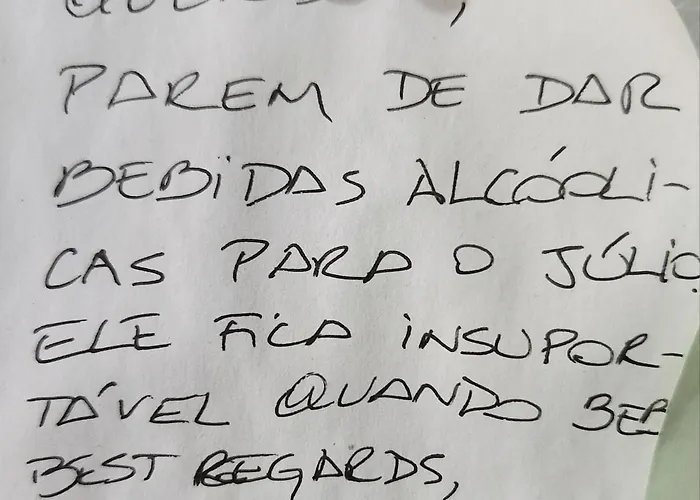 PAREM DE DAR
BEBIDAS ALCÓÓLI-
CAS PARA O JÚLIO.
ELE FICA INSUPOR-
TÁVEL QUANDO BEB
BEST REGARDS,